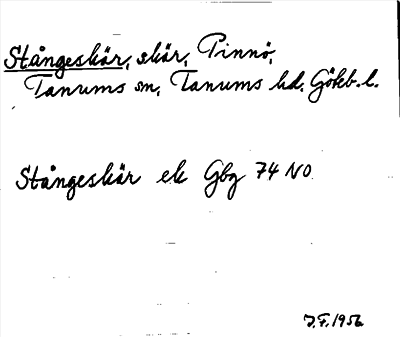 Stångeskär, skär, Pinnö,
Tanums sn, Tanums hd. Göteb. l.
Stångeskär ek Gbg 74 NO
J.F. 1956